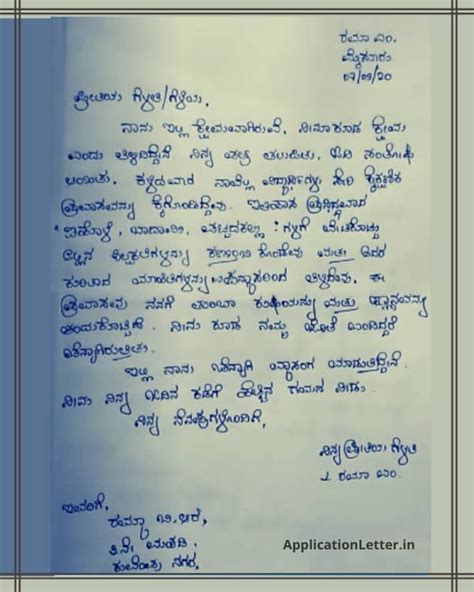 ರಮಾ ಎಂ.
ಮೈಸೂರು
07/09/20
ಪ್ರೀತಿಯ ಗೆಳತಿ/ಗೆಳೆಯ,
ನಾನು ಇಲ್ಲಿ ಕ್ಷೇಮವಾಗಿರುವೆ. ನೀನೂ ಕೂಡ ಕ್ಷೇಮ
ಎಂದು ತಿಳಿದಿದ್ದೇನೆ. ನಿನ್ನ ಪತ್ರ ತಲುಪಿತು. ಓದಿ ಸಂತೋಷ
ವಾಯಿತು. ಕಳೆದವಾರ ನಾವೆಲ್ಲ ವಿದ್ಯಾರ್ಥಿಗಳು ಸೇರಿ ಶೈಕ್ಷಣಿಕ
ಪ್ರವಾಸವನ್ನು ಕೈಗೊಂಡಿದ್ದೆವು. ಇತಿಹಾಸ ಪ್ರಸಿದ್ಧವಾದ
ಐಹೊಳೆ, ಬಾದಾಮಿ, ಪಟ್ಟದಕಲ್ಲು ಗಳಿಗೆ ಭೇಟಿಕೊಟ್ಟು
ಅಲ್ಲಿನ ಶಿಲ್ಪಕಲೆಗಳನ್ನು ಕಣ್ತುಂಬಿ ಕೊಂಡೆವು ಮತ್ತು ಅದರ
ಕುರಿತಾದ ಮಾಹಿತಿಗಳನ್ನು ತಿಳಿದೆವು. ಈ
ಪ್ರವಾಸವು ನನಗೆ ತುಂಬಾ ಖುಷಿಯನ್ನು ಮತ್ತು ಜ್ಞಾನವನ್ನು
ತಂದುಕೊಟ್ಟಿದೆ. ನೀನು ಕೂಡ ನಮ್ಮ ಜೊತೆ ಬಂದಿದ್ದರೆ
ಚೆನ್ನಾಗಿರುತ್ತಿತ್ತು.
ಇಲ್ಲಿ ನಾನು ಚೆನ್ನಾಗಿ ವ್ಯಾಸಂಗ ಮಾಡುತ್ತಿದ್ದೇನೆ.
ನೀನು ನಿನ್ನ ಓದಿನ ಕಡೆಗೆ ಹೆಚ್ಚಿನ ಗಮನ ನೀಡು.
ನಿನ್ನ ನೆನಪುಗಳೊಂದಿಗೆ,
ನಿನ್ನ ಪ್ರೀತಿಯ ಗೆಳತಿ
ರಮಾ ಎಂ.
ಇವರಿಗೆ,
ರಮ್ಯಾ ಬಿ. ಆರ್,
ನೇ ಮಹಡಿ
ಕುವೆಂಪು ನಗರ.
ApplicationLetter.in